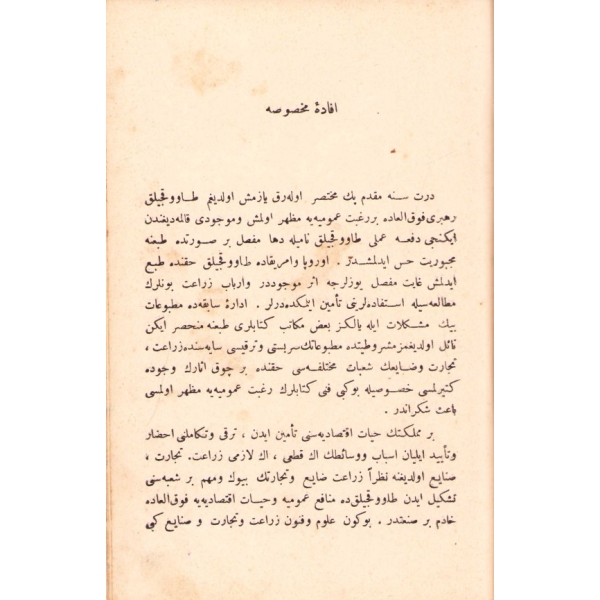 افادهٔ مخصوصه
درت سنه مقدم پك مختصر اوله‌رق يازمش اولديغم طاووقجيلق
رهبری فوق‌العاده بر رغبت عموميه‌يه مظهر اولمش وموجودی قالمه‌ديغندن
ايكنجی دفعه عملی طاووقجيلق ناميله دها مفصل بر صورتده طبعنه
مجبوريت حس ايدلمشدر . اوروپا وامريقاده طاووقجيلق حقنده طبع
ايدلمش غايت مفصل يوزلرجه اثر موجوددر وارباب زراعت بونلرك
مطالعه‌سيله استفاده‌لرينی تأمين ايتمكده‌درلر . ادارهٔ سابقه‌ده مطبوعات
بيك مشكلات ايله يالكز بعض مكاتب كتابلری طبعنه منحصر ايكن
نائل اولديغمز مشروطيتده مطبوعاتك سربستی وترقيسی سايه‌سنده زراعت ،
تجارت وصنايعك شعبات مختلفه‌سی حقنده بر چوق آثارك وجوده
كتيرلمسی خصوصيله بوكبی فنی كتابلرك رغبت عموميه‌يه مظهر اولمسی
باعث شكراندر .
بر مملكتك حيات اقتصاديه‌سنی تأمين ايدن ، ترقی وتكاملنی احضار
وتأييد ايليان اسباب ووسائطك اك قطعی ، اك لازمی زراعت. تجارت ،
صنايع اولديغنه نظراً زراعت صنايع وتجارتك بيوك ومهم بر شعبه‌سنی
تشكيل ايدن طاووقجيلق‌ده منافع عموميه وحيات اقتصاديه‌يه فوق‌العاده
خادم بر صنعتدر . بوكون علوم وفنون زراعت وتجارت و صنايع كبی